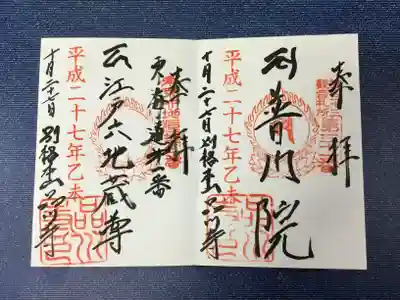 奉拝
観音札所
普門院
平成二十七年乙未
十月二十七日 別格本山品川寺
奉拝
東海道第一番
江戸六地蔵尊
平成二十七年乙未
十月二十七日 別格本山品川寺